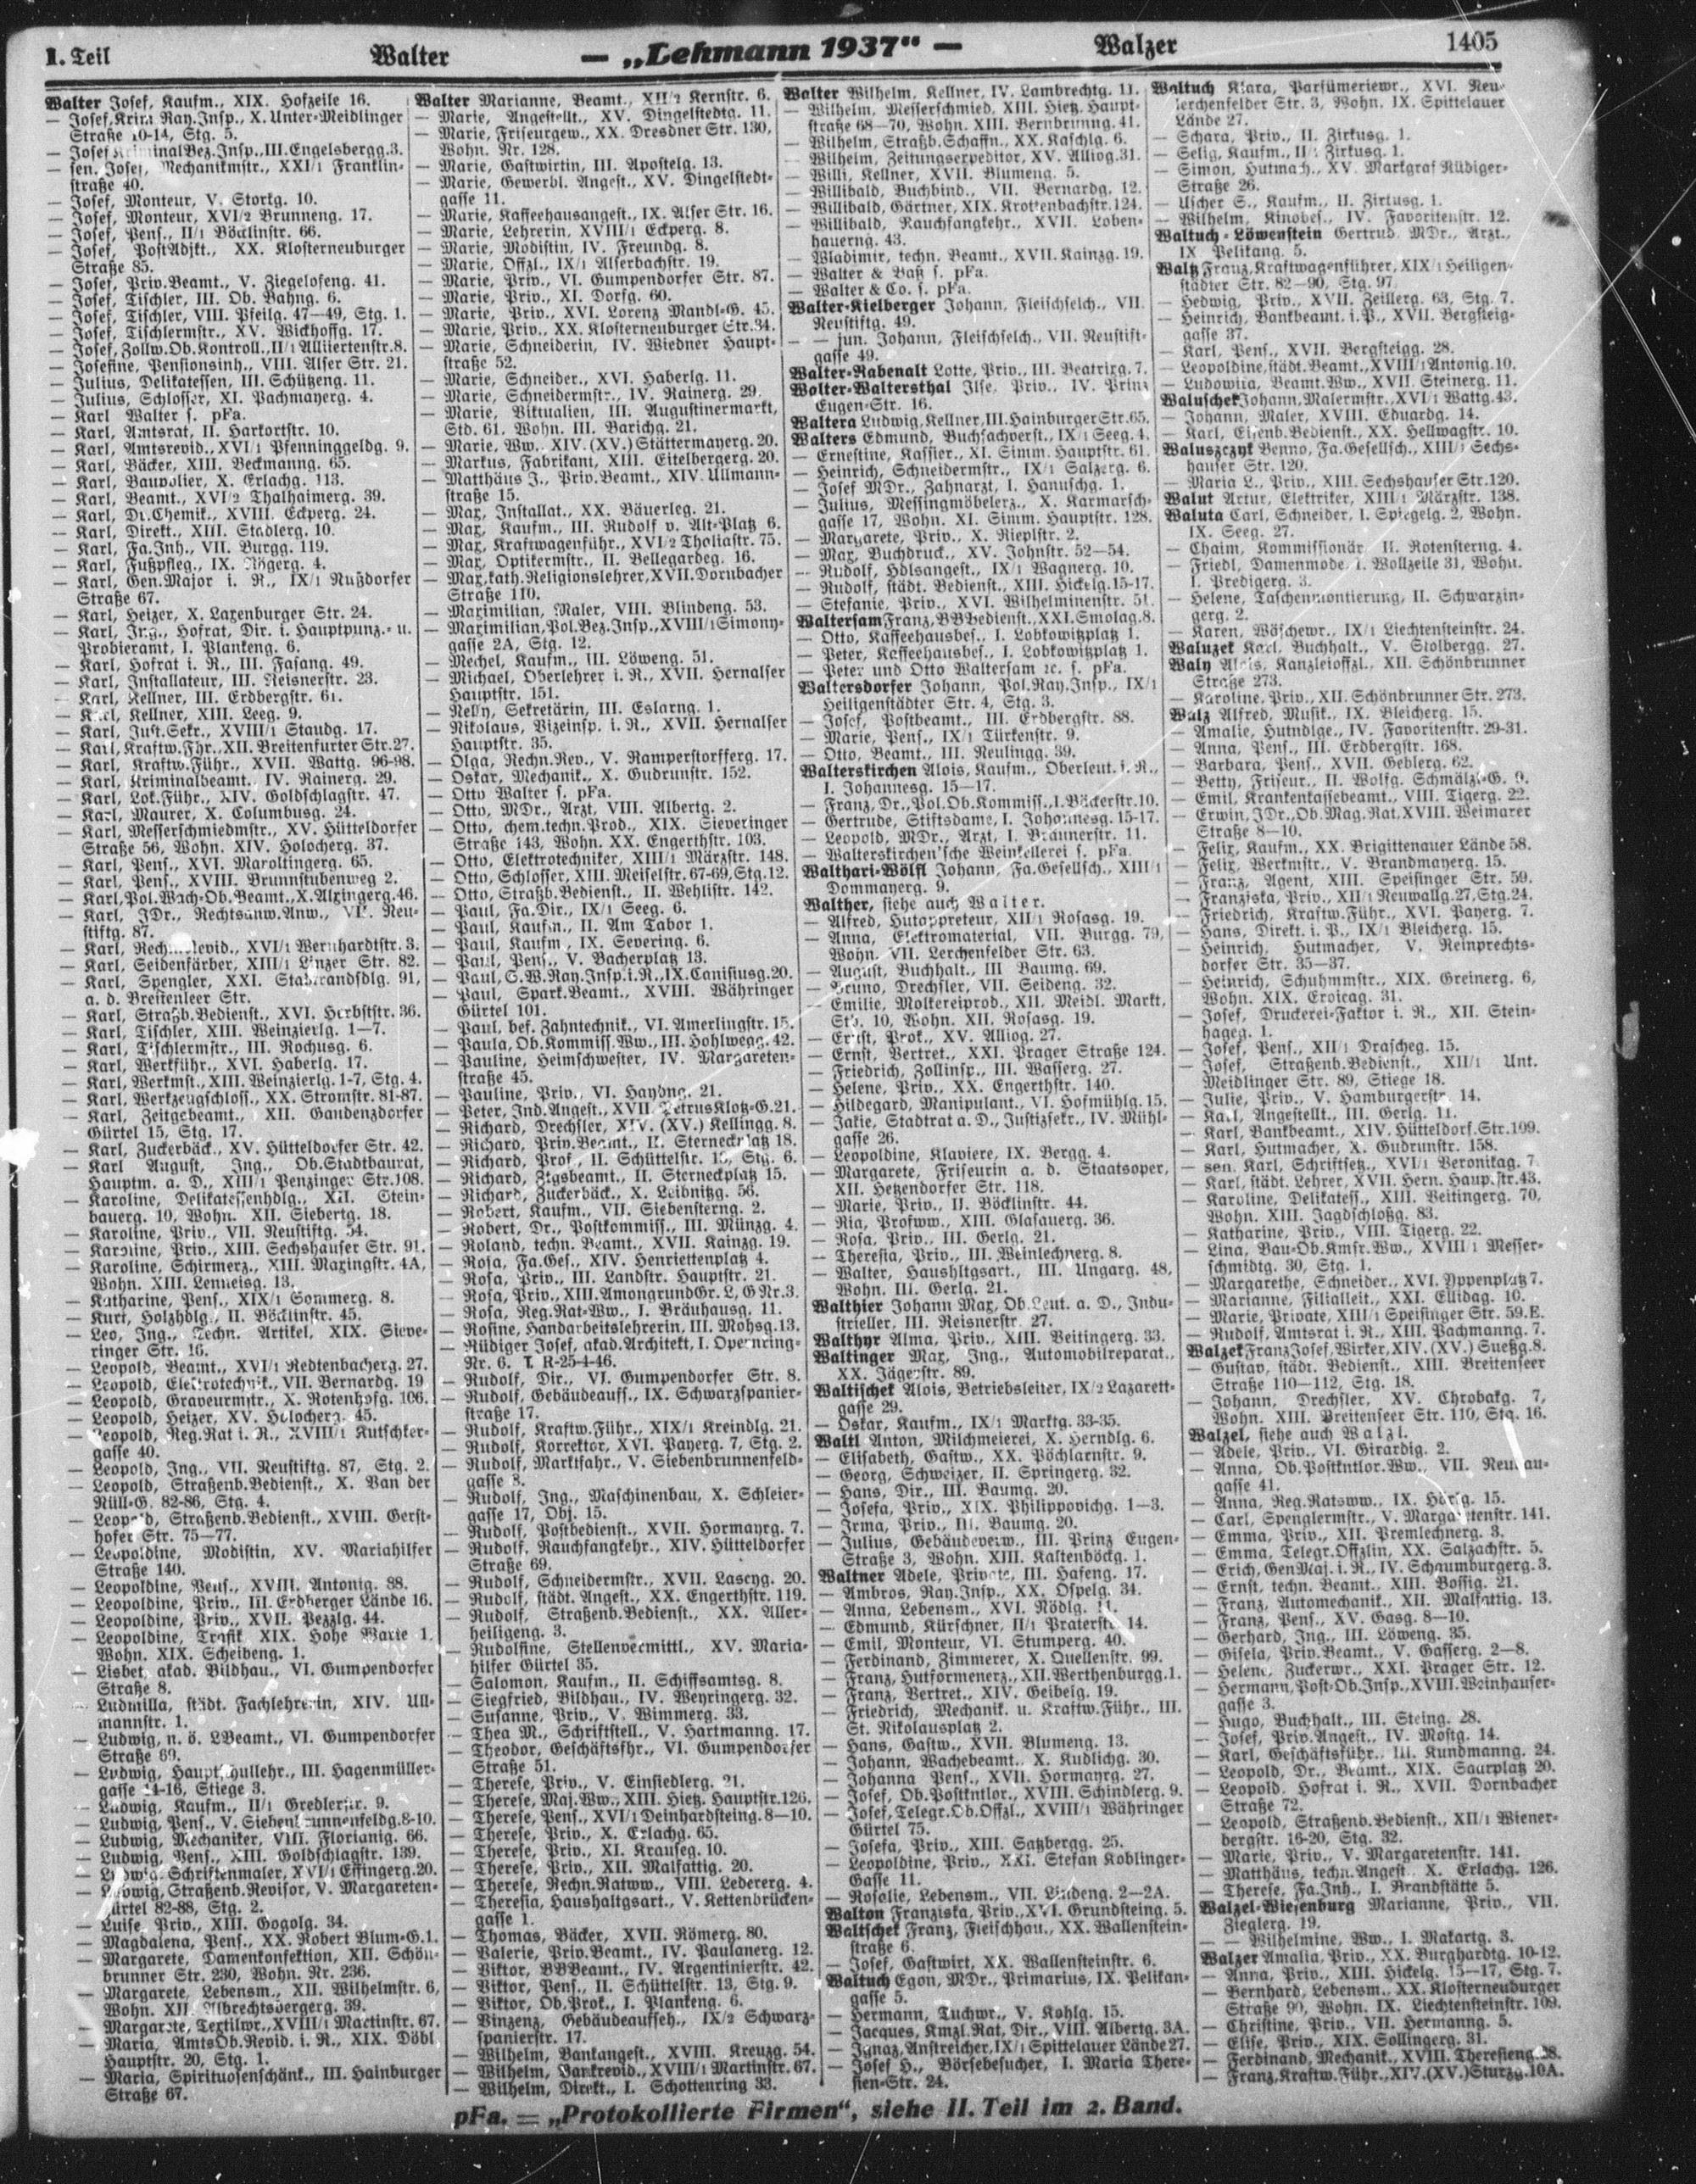 I. Teil
Walter
— „Lehmann 1937“ —
Walzer
1405
Walter Josef, Kaufm., XIX. Hofzeile 16.
— Josef, Krim. Ray.Insp., X. Unter-Meidlinger
Straße 10-14, Stg. 5.
— Josef KriminalBez.Insp., III. Engelsbergg.3.
— sen. Josef, Mechanikmstr., XXI/1 Franklin-
straße 40.
— Josef, Monteur, V. Storkg. 10.
— Josef, Monteur, XVI/2 Brunneng. 17.
— Josef, Pens., II/1 Böcklinstr. 66.
— Josef, PostAdjkt., XX. Klosterneuburger
Straße 85.
— Josef, Priv.Beamt., V. Ziegelofeng. 41.
— Josef, Tischler, III. Ob. Bahng. 6.
— Josef, Tischler, VIII. Pfeilg. 47—49, Stg. 1.
— Josef, Tischlermstr., XV. Wickhoffg. 17.
— Josef, Zollw.Ob.Kontroll., II/1 Alliiertenstr.8.
— Josefine, Pensionsinh., VIII. Alser Str. 21.
— Julius, Delikatessen, III. Schützeng. 11.
— Julius, Schlosser, XI. Pachmayerg. 4.
— Karl Walter s. pFa.
— Karl, Amtsrat, II. Harkortstr. 10.
— Karl, Amtsrevid., XVI/1 Pfenninggeldg. 9.
— Karl, Bäcker, XIII. Beckmanng. 65.
— Karl, Baupolier, X. Erlachg. 113.
— Karl, Beamt., XVI/2 Thalhaimerg. 39.
— Karl, Dr.Chemik., XVIII. Eckperg. 24.
— Karl, Direkt., XIII. Stadlerg. 10.
— Karl, Fa.Inh., VII. Burgg. 119.
— Karl, Fußpfleg., IX. Rögerg. 4.
— Karl, Gen.Major i. R., IX/1 Nußdorfer
Straße 67.
— Karl, Heizer, X. Laxenburger Str. 24.
— Karl, Ing., Hofrat, Dir. i. Hauptpunz.- u.
Probieramt, I. Plankeng. 6.
— Karl, Hofrat i. R., III. Fasang. 49.
— Karl, Installateur, III. Reisnerstr. 23.
— Karl, Kellner, III. Erdbergstr. 61.
— Karl, Kellner, XIII. Leeg. 9.
— Karl, Just.Sekr., XVIII/1 Staudg. 17.
— Karl, Kraftw.Fhr., XII. Breitenfurter Str.27.
— Karl, Kraftw.Führ., XVII. Wattg. 96-98.
— Karl, Kriminalbeamt., IV. Rainerg. 29.
— Karl, Lok.Führ., XIV. Goldschlagstr. 47.
— Karl, Maurer, X. Columbusg. 24.
— Karl, Messerschmiedmstr., XV. Hütteldorfer
Straße 56, Wohn. XIV. Holocherg. 37.
— Karl, Pens., XVI. Maroltingerg. 65.
— Karl, Pens., XVIII. Brunnstubenweg 2.
— Karl, Pol.Wach-Ob.Beamt., X. Alxingerg.46.
— Karl, JDr., Rechtsanw.Anw., VII. Neu-
stiftg. 87.
— Karl, Rech. Revid., XVI/1 Wernhardtstr. 3.
— Karl, Seidenfärber, XIII/1 Linzer Str. 82.
— Karl, Spengler, XXI. Stadtrandsdlg. 91,
a. d. Breitenleer Str.
— Karl, Straßb.Bedienst., XVI. Herbststr. 36.
— Karl, Tischler, XIII. Weinzierlg. 1—7.
— Karl, Tischlermstr., III. Rochusg. 6.
— Karl, Werkführ., XVI. Haberlg. 17.
— Karl, Werkmst., XIII. Weinzierlg. 1-7, Stg. 4.
— Karl, Werkzeugschloss., XX. Stromstr. 81-87.
— Karl, Zeitgsbeamt., XII. Gaudenzdorfer
Gürtel 15, Stg. 17.
— Karl, Zuckerbäck., XV. Hütteldorfer Str. 42.
— Karl August, Ing., Ob.Stadtbaurat,
Hauptm. a. D., XIII/1 Penzinger Str.108.
— Karoline, Delikatessenhdlg., XII. Stein-
bauerg. 10, Wohn. XII. Siebertg. 18.
— Karoline, Priv., VII. Neustiftg. 54.
— Karoline, Priv., XIII. Sechshauser Str. 91.
— Karoline, Schirmerz., XIII. Maxingstr. 4A,
Wohn. XIII. Lenneisg. 13.
— Katharine, Pens., XIX/1 Sommerg. 8.
— Kurt, Holzhdlg., II. Böcklinstr. 45.
— Leo, Ing., Techn. Artikel, XIX. Sieve-
ringer Str. 16.
— Leopold, Beamt., XVI/1 Redtenbacherg. 27.
— Leopold, Elektrotechnik., VII. Bernardg. 19
— Leopold, Graveurmstr., X. Rotenhofg. 106.
— Leopold, Heizer, XV. Holocherg. 45.
— Leopold, Reg.Rat i. R., XVIII/1 Kutschker-
gasse 40.
— Leopold, Ing., VII. Neustiftg. 87, Stg. 2.
— Leopold, Straßenb.Bedienst., X. Van der
Nüll-G. 82-86, Stg. 4.
— Leopold, Straßenb.Bedienst., XVIII. Gerst-
hofer Str. 75—77.
— Leopoldine, Modistin, XV. Mariahilfer
Straße 140.
— Leopoldine, Pens., XVIII. Antonig. 88.
— Leopoldine, Priv., III. Erdberger Lände 16.
— Leopoldine, Priv., XVII. Pezzlg. 44.
— Leopoldine, Trafik XIX. Hohe Warte 1.
Wohn. XIX. Scheibeng. 1.
— Lisbet, akad. Bildhau., VI. Gumpendorfer
Straße 8.
— Ludmilla, städt. Fachlehrerin, XIV. Ull-
mannstr. 1.
— Ludwig, n. ö. LBeamt., VI. Gumpendorfer
Straße 69.
— Ludwig, Hauptschullehr., III. Hagenmüller-
gasse 14-16, Stiege 3.
— Ludwig, Kaufm., II/1 Gredlerstr. 9.
— Ludwig, Pens., V. Siebenbrunnenfeldg.8-10.
— Ludwig, Mechaniker, VIII. Florianig. 66.
— Ludwig, Pens., XIII. Goldschlagstr. 139.
— Ludwig Schriftenmaler, XVI/1 Effingerg.20.
— Ludwig, Straßenb.Revisor, V. Margareten-
gürtel 82-88, Stg. 2.
— Luise, Priv., XIII. Gogolg. 34.
— Magdalena, Pens., XX. Robert Blum-G.1.
— Margarete, Damenkonfektion, XII. Schön-
brunner Str. 230, Wohn. Nr. 236.
— Margarete, Lebensm., XII. Wilhelmstr. 6,
Wohn. XII. Albrechtsbergerg. 39.
— Margarete, Textilwr., XVIII/1 Martinstr. 67.
— Maria, AmtsOb.Revid. i. R., XIX. Döbl.
Hauptstr. 20, Stg. 1.
— Maria, Spirituosenschänk., III. Hainburger
Straße 67.
Walter Marianne, Beamt., XII/2 Kernstr. 6.
— Marie, Angestellt., XV. Dingelstedtg. 11.
— Marie, Friseurgew., XX. Dresdner Str. 130,
Wohn. Nr. 128.
— Marie, Gastwirtin, III. Apostelg. 13.
— Marie, Gewerbl. Angest., XV. Dingelstedt-
gasse 11.
— Marie, Kaffeehausangest., IX. Alser Str. 16.
— Marie, Lehrerin, XVIII/1 Eckperg. 8.
— Marie, Modistin, IV. Freundg. 8.
— Marie, Offzl., IX/1 Alserbachstr. 19.
— Marie, Priv., VI. Gumpendorfer Str. 87.
— Marie, Priv., XI. Dorfg. 60.
— Marie, Priv., XVI. Lorenz Mandl-G. 45.
— Marie, Priv., XX. Klosterneuburger Str.34.
— Marie, Schneiderin, IV. Wiedner Haupt-
straße 52.
— Marie, Schneider., XVI. Haberlg. 11.
— Marie, Schneidermstr., IV. Rainerg. 29.
— Marie, Viktualien, III. Augustinermarkt,
Std. 61, Wohn. III. Barichg. 21.
— Marie, Ww., XIV. (XV.) Stättermayerg. 20.
— Markus, Fabrikant, XIII. Eitelbergerg. 20.
— Matthäus J., Priv.Beamt., XIV. Ullmann-
straße 15.
— Max, Installat., XX. Bäuerleg. 21.
— Max, Kaufm., III. Rudolf v. Alt-Platz 6.
— Max, Kraftwagenführ., XVI/2 Thaliastr. 75.
— Max, Optikermstr., II. Bellegardeg. 16.
— Max, kath.Religionslehrer, XVII. Dornbacher
Straße 110.
— Maximilian, Maler, VIII. Blindeng. 53.
— Maximilian, Pol.Bez.Insp., XVIII/1 Simony-
gasse 2A, Stg. 12.
— Mechel, Kaufm., III. Löweng. 51.
— Michael, Oberlehrer i. R., XVII. Hernalser
Hauptstr. 151.
— Nelly, Sekretärin, III. Eslarng. 1.
— Nikolaus, Vizeinsp. i. R., XVII. Hernalser
Hauptstr. 35.
— Olga, Rechn.Rev., V. Ramperstorfferg. 17.
— Oskar, Mechanik., X. Gudrunstr. 152.
— Otto Walter s. pFa.
— Otto, MDr., Arzt, VIII. Albertg. 2.
— Otto, chem.techn.Prod., XIX. Sieveringer
Straße 143, Wohn. XX. Engerthstr. 103.
— Otto, Elektrotechniker, XIII/1 Märzstr. 148.
— Otto, Schlosser, XIII. Meiselstr. 67-69, Stg.12.
— Otto, Straßb.Bedienst., II. Wehlistr. 142.
— Paul, Fa.Dir., IX/1 Seeg. 6.
— Paul, Kaufm., II. Am Tabor 1.
— Paul, Kaufm., IX. Severing. 6.
— Paul, Pens., V. Bacherplatz 13.
— Paul, S.W.Ray.Insp.i.R., IX. Canisiusg.20.
— Paul, Spark.Beamt., XVIII. Währinger
Gürtel 101.
— Paul, bef. Zahntechnik., VI. Amerlingstr. 15.
— Paula, Ob.Kommiss.Ww., III. Hohlwegg. 42.
— Pauline, Heimschwester, IV. Margareten-
straße 45.
— Pauline, Priv., VI. Haydng. 21.
— Peter, Ind.Angest., XVII. PetrusKlotz-G.21.
— Richard, Drechsler, XIV. (XV.) Kellingg. 8.
— Richard, Priv.Beamt., II. Sterneckplatz 18.
— Richard, Prof., II. Schüttelstr. 13, Stg. 6.
— Richard, Ztgsbeamt., II. Sterneckplatz 15.
— Richard, Zuckerbäck., X. Leibnitzg. 56.
— Robert, Kaufm., VII. Siebensterng. 2.
— Robert, Dr., Postkommiss., III. Münzg. 4.
— Roland, techn. Beamt., XVII. Kainzg. 19.
— Rosa, Fa.Ges., XIV. Henriettenplatz 4.
— Rosa, Priv., III. Landstr. Hauptstr. 21.
— Rosa, Priv., XIII. AmongrundGr. L, GNr.3.
— Rosa, Reg.Rat-Ww., I. Bräuhausg. 11.
— Rosine, Handarbeitslehrerin, III. Mohsg.13.
— Rüdiger Josef, akad.Architekt, I. Opernring-
Nr. 6. T. R-25-4-46.
— Rudolf, Dir., VI. Gumpendorfer Str. 8.
— Rudolf, Gebäudeauff., IX. Schwarzspanier-
straße 17.
— Rudolf, Kraftw.Führ., XIX/1 Kreindlg. 21.
— Rudolf, Korrektor, XVI. Payerg. 7, Stg. 2.
— Rudolf, Marktfahr., V. Siebenbrunnenfeld-
gasse 8.
— Rudolf, Ing., Maschinenbau, X. Schleier-
gasse 17, Obj. 15.
— Rudolf, Postbedienst., XVII. Hormayrg. 7.
— Rudolf, Rauchfangkehr., XIV. Hütteldorfer
Straße 69.
— Rudolf, Schneidermstr., XVII. Lascyg. 20.
— Rudolf, städt. Angest., XX. Engerthstr. 119.
— Rudolf, Straßenb.Bedienst., XX. Aller-
heiligeng. 3.
— Rudolfine, Stellenvermittl., XV. Maria-
hilfer Gürtel 35.
— Salomon, Kaufm., II. Schiffsamtsg. 8.
— Siegfried, Bildhau., IV. Weyringerg. 32.
— Susanne, Priv., V. Wimmerg. 33.
— Thea M., Schriftstell., V. Hartmanng. 17.
— Theodor, Geschäftsfhr., VI. Gumpendorfer
Straße 51.
— Therese, Priv., V. Einsiedlerg. 21.
— Therese, Maj.Ww., XIII. Hietz. Hauptstr.126.
— Therese, Pens., XVI/1 Deinhardsteing. 8—10.
— Therese, Priv., X. Erlachg. 65.
— Therese, Priv., XI. Krauseg. 10.
— Therese, Priv., XII. Malfattig. 20.
— Therese, Rechn.Ratww., VIII. Ledererg. 4.
— Theresia, Haushaltgsart., V. Kettenbrücken-
gasse 1.
— Thomas, Bäcker, XVII. Römerg. 80.
— Valerie, Priv.Beamt., IV. Paulanerg. 12.
— Viktor, BBBeamt., IV. Argentinierstr. 42.
— Viktor, Pens., II. Schüttelstr. 13, Stg. 9.
— Viktor, Ob.Prok., I. Plankeng. 6.
— Vinzenz, Gebäudeaufseh., IX/2 Schwarz-
spanierstr. 17.
— Wilhelm, Bankangest., XVIII. Kreuzg. 54.
— Wilhelm, Bankrevid., XVIII/1 Martinstr. 67.
— Wilhelm, Direkt., I. Schottenring 33.
Walter Wilhelm, Kellner, IV. Lambrechtg. 11.
— Wilhelm, Messerschmied, XIII. Hietz. Haupt-
straße 68—70, Wohn. XIII. Bernbrunng. 41.
— Wilhelm, Straßb.Schaffn., XX. Kaschlg. 6.
— Wilhelm, Zeitungsexpeditor, XV. Alliog.31.
— Willi, Kellner, XVII. Blumeng. 5.
— Willibald, Buchbind., VII. Bernardg. 12.
— Willibald, Gärtner, XIX. Krottenbachstr.124.
— Willibald, Rauchfangkehr., XVII. Loben-
hauerng. 43.
— Wladimir, techn. Beamt., XVII. Kainzg. 19.
— Walter & Baß s. pFa.
— Walter & Co. s. pFa.
Walter-Kielberger Johann, Fleischselch., VII.
Neustiftg. 49.
— — jun. Johann, Fleischselch., VII. Neustift-
gasse 49.
Walter-Rabenalt Lotte, Priv., III. Beatrixg. 7.
Walter-Waltersthal Ilse, Priv., IV. Prinz
Eugen-Str. 16.
Waltera Ludwig, Kellner, III. Hainburger Str.65.
Walters Edmund, Buchsachverst., IX/1 Seeg. 4.
— Ernestine, Kassier., XI. Simm. Hauptstr. 61.
— Heinrich, Schneidermstr., IX/1 Salzerg. 6.
— Josef MDr., Zahnarzt, I. Hanuschg. 1.
— Julius, Messingmöbelerz., X. Karmarsch-
gasse 17, Wohn. XI. Simm. Hauptstr. 128.
— Margarete, Priv., X. Rieplstr. 2.
— Max, Buchdruck., XV. Johnstr. 52—54.
— Rudolf, Hdlsangest., IX/1 Wagnerg. 10.
— Rudolf, städt. Bedienst., XIII. Hickelg.15-17.
— Stefanie, Priv., XVI. Wilhelminenstr. 51.
Waltersam Franz, BBBedienst., XXI. Smolag.8.
— Otto, Kaffeehausbes., I. Lobkowitzplatz 1.
— Peter, Kaffeehausbes., I. Lobkowitzplatz 1.
— Peter und Otto Waltersam rc. s. pFa.
Waltersdorfer Johann, Pol.Ray.Insp., IX/1
Heiligenstädter Str. 4, Stg. 3.
— Josef, Postbeamt., III. Erdbergstr. 88.
— Marie, Pens., IX/1 Türkenstr. 9.
— Otto, Beamt., III. Neulingg. 39.
Walterskirchen Alois, Kaufm., Oberleut. i. R.,
I. Johannesg. 15—17.
— Franz, Dr., Pol.Ob.Kommiss., I. Bäckerstr.10.
— Gertrude, Stiftsdame, I. Johannesg. 15-17.
— Leopold, MDr., Arzt, I. Bräunerstr. 11.
— Walterskirchen'sche Weinkellerei s. pFa.
Walthari-Wölfl Johann, Fa.Gesellsch., XIII/1
Dommayerg. 9.
Walther, siehe auch Walter.
— Alfred, Hutappreteur, XII/1 Rosasg. 19.
— Anna, Elektromaterial, VII. Burgg. 79,
Wohn. VII. Lerchenfelder Str. 63.
— August, Buchhalt., III Baumg. 69.
— Bruno, Drechsler, VII. Seideng. 32.
— Emilie, Molkereiprod., XII. Meidl. Markt,
Std. 10, Wohn. XII. Rosasg. 19.
— Ernst, Prok., XV. Alliog. 27.
— Ernst, Vertret., XXI. Prager Straße 124.
— Friedrich, Zollinsp., III. Wasserg. 27.
— Helene, Priv., XX. Engerthstr. 140.
— Hildegard, Manipulant., VI. Hofmühlg. 15.
— Jakie, Stadtrat a. D., Justizsekr., IV. Mühl-
gasse 26.
— Leopoldine, Klaviere, IX. Bergg. 4.
— Margarete, Friseurin a. d. Staatsoper,
XII. Hetzendorfer Str. 118.
— Marie, Priv., II. Böcklinstr. 44.
— Ria, Profww., XIII. Glasauerg. 36.
— Rosa, Priv., III. Gerlg. 21.
— Theresia, Priv., III. Weinlechnerg. 8.
— Walter, Haushltgsart., III. Ungarg. 48,
Wohn. III. Gerlg. 21.
Walthier Johann Max, Ob.Leut. a. D., Indu-
strieller, III. Reisnerstr. 27.
Walthyr Alma, Priv., XIII. Veitingerg. 33.
Waltinger Max, Ing., Automobilreparat.,
XX. Jägerstr. 89.
Waltischek Alois, Betriebsleiter, IX/2 Lazarett-
gasse 29.
— Oskar, Kaufm., IX/1 Marktg. 33-35.
Waltl Anton, Milchmeierei, X. Herndlg. 6.
— Elisabeth, Gastw., XX. Pöchlarnstr. 9.
— Georg, Schweizer, II. Springerg. 32.
— Hans, Dir., III. Baumg. 20.
— Josefa, Priv., XIX. Philippovichg. 1—3.
— Irma, Priv., III. Baumg. 20.
— Julius, Gebäudeverw., III. Prinz Eugen-
Straße 3, Wohn. XIII. Kaltenböckg. 1.
Waltner Adele, Private, III. Hafeng. 17.
— Ambros, Ray.Insp., XX. Ospelg. 34.
— Anna, Lebensm., XVI. Rödlg. 11.
— Edmund, Kürschner, II/1 Praterstr. 14.
— Emil, Monteur, VI. Stumperg. 40.
— Ferdinand, Zimmerer, X. Quellenstr. 99.
— Franz, Hutformenerz., XII. Werthenburgg.1.
— Franz, Vertret., XIV. Geibelg. 19.
— Friedrich, Mechanik. u. Kraftw.Führ., III.
St. Nikolausplatz 2.
— Hans, Gastw., XVII. Blumeng. 13.
— Johann, Wachebeamt., X. Kudlichg. 30.
— Johanna Pens., XVII. Hormayrg. 27.
— Josef, Ob.Postkntlor., XVIII. Schindlerg. 9.
— Josef, Telegr.Ob.Offzl., XVIII/1 Währinger
Gürtel 75.
— Josefa, Priv., XIII. Satzbergg. 25.
— Leopoldine, Priv., XXI. Stefan Koblinger-
Gasse 11.
— Rosalie, Lebensm., VII. Lindeng. 2—2A.
Walton Franziska, Priv., XVI. Grundsteing. 5.
Waltschek Franz, Fleischhau., XX. Wallenstein-
straße 6.
— Josef, Gastwirt, XX. Wallensteinstr. 6.
Waltuch Egon, MDr., Primarius, IX. Pelikan-
gasse 5.
— Hermann, Tuchwr., V. Kohlg. 15.
— Jacques, Kmzl.Rat, Dir., VIII. Albertg. 3A.
— Ignaz, Anstreicher, IX/1 Spittelauer Lände 27.
— Josef H., Börsebesucher, I. Maria There-
sien-Str. 24.
Waltuch Klara, Parfümeriewr., XVI. Neu-
lerchenfelder Str. 3, Wohn. IX. Spittelauer
Lände 27.
— Schara, Priv., II. Zirkusg. 1.
— Selig, Kaufm., II/1 Zirkusg. 1.
— Simon, Hutmach., XV. Markgraf Rüdiger-
Straße 26.
— Uscher S., Kaufm., II. Zirkusg. 1.
— Wilhelm, Kinobes., IV. Favoritenstr. 12.
Waltuch-Löwenstein Gertrud, MDr., Arzt.,
IX Pelikang. 5.
Waltz Franz, Kraftwagenführer, XIX/1 Heiligen-
städter Str. 82—90, Stg. 97.
— Hedwig, Priv., XVII. Zeillerg. 63, Stg. 7.
— Heinrich, Bankbeamt. i.P., XVII. Bergsteig-
gasse 37.
— Karl, Pens., XVII. Bergsteigg. 28.
— Leopoldine, städt.Beamt., XVIII/1 Antonig.10.
— Ludowika, Beamt.Ww., XVII. Steinerg. 11.
Waluschek Johann, Malermstr., XVI/1 Wattg.43.
— Johann, Maler, XVIII. Eduardg. 14.
— Karl, Eisenb.Bedienst., XX. Hellwagstr. 10.
Waluszczyk Benno, Fa.Gesellsch., XIII/1 Sechs-
hauser Str. 120.
— Maria L., Priv., XIII. Sechshauser Str.120.
Walut Artur, Elektriker, XIII/1 Märzstr. 138.
Waluta Carl, Schneider, I. Spiegelg. 2, Wohn.
IX. Seeg. 27.
— Chaim, Kommissionär II. Rotensterng. 4.
— Friedl, Damenmode, I. Wollzeile 31, Wohn.
I. Predigerg. 3.
— Helene, Taschenmontierung, II. Schwarzin-
gerg. 2.
— Karen, Wäschewr., IX/1 Liechtensteinstr. 24.
Waluzek Karl, Buchhalt., V. Stolbergg. 27.
Waly Alois, Kanzleioffzl., XII. Schönbrunner
Straße 273.
— Karoline, Priv., XII. Schönbrunner Str. 273.
Walz Alfred, Musik., IX. Bleicherg. 15.
— Amalie, Hutndlge., IV. Favoritenstr. 29-31.
— Anna, Pens., III. Erdbergstr. 168.
— Barbara, Pens., XVII. Geblerg. 62.
— Betty, Friseur., II. Wolfg. Schmälzl-G. 9.
— Emil, Krankenkassebeamt., VIII. Tigerg. 22.
— Erwin, JDr., Ob.Mag.Rat, XVIII. Weimarer
Straße 8—10.
— Felix, Kaufm., XX. Brigittenauer Lände 58.
— Felix, Werkmstr., V. Brandmayerg. 15.
— Franz, Agent, XIII. Speisinger Str. 59.
— Franziska, Priv., XII/1 Neuwallg.27, Stg.24.
— Friedrich, Kraftw.Führ., XVI. Payerg. 7.
— Hans, Direkt. i. P., IX/1 Bleicherg. 15.
— Heinrich, Hutmacher, V. Reinprechts-
dorfer Str. 35—37.
— Heinrich, Schuhmmstr., XIX. Greinerg. 6,
Wohn. XIX. Eroicag. 31.
— Josef, Druckerei-Faktor i. R., XII. Stein-
hageg. 1.
— Josef, Pens., XII/1 Drascheg. 15.
— Josef, Straßenb.Bedienst., XII/1 Unt.
Meidlinger Str. 89, Stiege 18.
— Julie, Priv., V. Hamburgerstr. 14.
— Karl, Angestellt., III. Gerlg. 11.
— Karl, Bankbeamt., XIV. Hütteldorf.Str.109.
— Karl, Hutmacher, X. Gudrunstr. 158.
— sen. Karl, Schriftsetz., XVI/1 Veronikag. 7.
— Karl, städt. Lehrer, XVII. Hern. Hauptstr.43.
— Karoline, Delikatess., XIII. Veitingerg. 70,
Wohn. XIII. Jagdschloßg. 83.
— Katharine, Priv., VIII. Tigerg. 22.
— Lina, Bau-Ob.Kmsr.Ww., XVIII/1 Messer-
schmidtg. 30, Stg. 1.
— Margarethe, Schneider., XVI. Yppenplatz 7.
— Marianne, Filialleit., XXI. Ellidag. 16.
— Marie, Private, XIII/1 Speisinger Str. 59.E.
— Rudolf, Amtsrat i. R., XIII. Pachmanng. 7.
Walzek Franz Josef, Wirker, XIV. (XV.) Sueßg.8.
— Gustav, städt. Bedienst., XIII. Breitenseer
Straße 110—112, Stg. 18.
— Johann, Drechsler, XV. Chrobakg. 7,
Wohn. XIII. Breitenseer Str. 110, Stg. 16.
Walzel, siehe auch Walzl.
— Adele, Priv., VI. Girardig. 2.
— Anna, Ob.Postkntlor.Ww., VII. Neubau-
gasse 41.
— Anna, Reg.Ratsww., IX. Hörlg. 15.
— Carl, Spenglermstr., V. Margaretenstr. 141.
— Emma, Priv., XII. Premlechnerg. 3.
— Emma, Telegr.Offzlin, XX. Salzachstr. 5.
— Erich, GenMaj. i. R., IV. Schaumburgerg. 3.
— Ernst, techn. Beamt., XIII. Bossig. 21.
— Franz, Automechanik., XII. Malfattig. 13.
— Franz, Pens., XV. Gasg. 8—10.
— Gerhard, Ing., III. Löweng. 35.
— Gisela, Priv.Beamt., V. Gasserg. 2—8.
— Helene, Zuckerwr., XXI. Prager Str. 12.
— Hermann, Post-Ob.Insp., XVIII. Weinhauser-
gasse 3.
— Hugo, Buchhalt., III. Steing. 28.
— Josef, Priv.Angest., IV. Mostg. 14.
— Karl, Geschäftsführ., III. Kundmanng. 24.
— Leopold, Dr., Beamt., XIX. Saarplatz 20.
— Leopold, Hofrat i. R., XVII. Dornbacher
Straße 72.
— Leopold, Straßenb.Bedienst., XII/1 Wiener-
bergstr. 16-20, Stg. 32.
— Marie, Priv., V. Margaretenstr. 141.
— Matthäus, techn.Angest., X. Erlachg. 126.
— Therese, Fa.Inh., I. Brandstätte 5.
Walzel-Wiesenburg Marianne, Priv., VII.
Zieglerg. 19.
— — Wilhelmine, Ww., I. Makartg. 3.
Walzer Amalia, Priv., XX. Burghardtg. 10-12.
— Anna, Priv., XIII. Hickelg. 15—17, Stg. 7.
— Bernhard, Lebensm., XX. Klosterneuburger
Straße 90, Wohn. IX. Liechtensteinstr. 109.
— Christine, Priv., VII. Hermanng. 5.
— Elise, Priv., XIX. Sollingerg. 31.
— Ferdinand, Mechanik., XVIII. Theresieng.28.
— Franz, Kraftw.Führ., XIV.(XV.) Sturzg.10A.
pFa. = „Protokollierte Firmen“, siehe II. Teil im 2. Band.